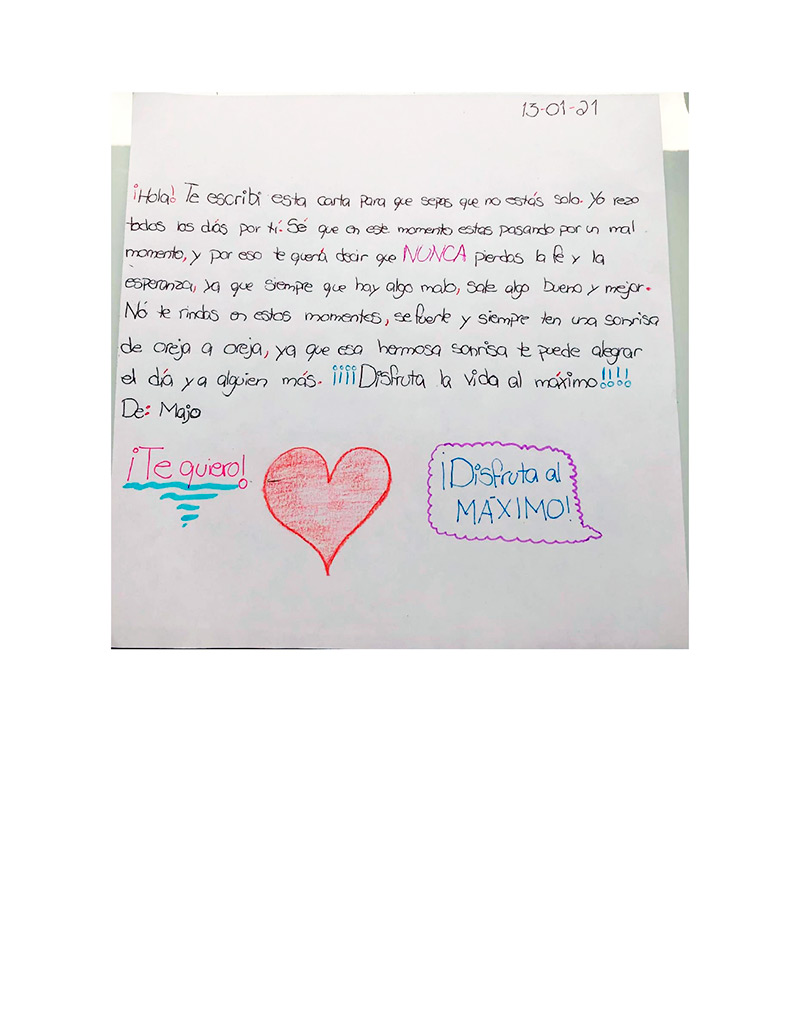 13-01-21
¡Hola! Te escribí esta carta para que sepas que no estás solo. Yo rezo
todos los días por tí. Sé que en este momento estas pasando por un mal
momento, y por eso te quería decir que NUNCA pierdas la fe y la
esperanza, ya que siempre que hay algo malo, sale algo bueno y mejor.
Nó te rindas en estos momentes, se fuerte y siempre ten una sonrisa
de oreja a oreja, ya que esa hermosa sonrisa te puede alegrar
el día y a alguien más. ¡¡¡¡Disfruta la vida al máximo!!!!
De: Majo
¡Te quiero!
¡Disfruta al
MÁXIMO!